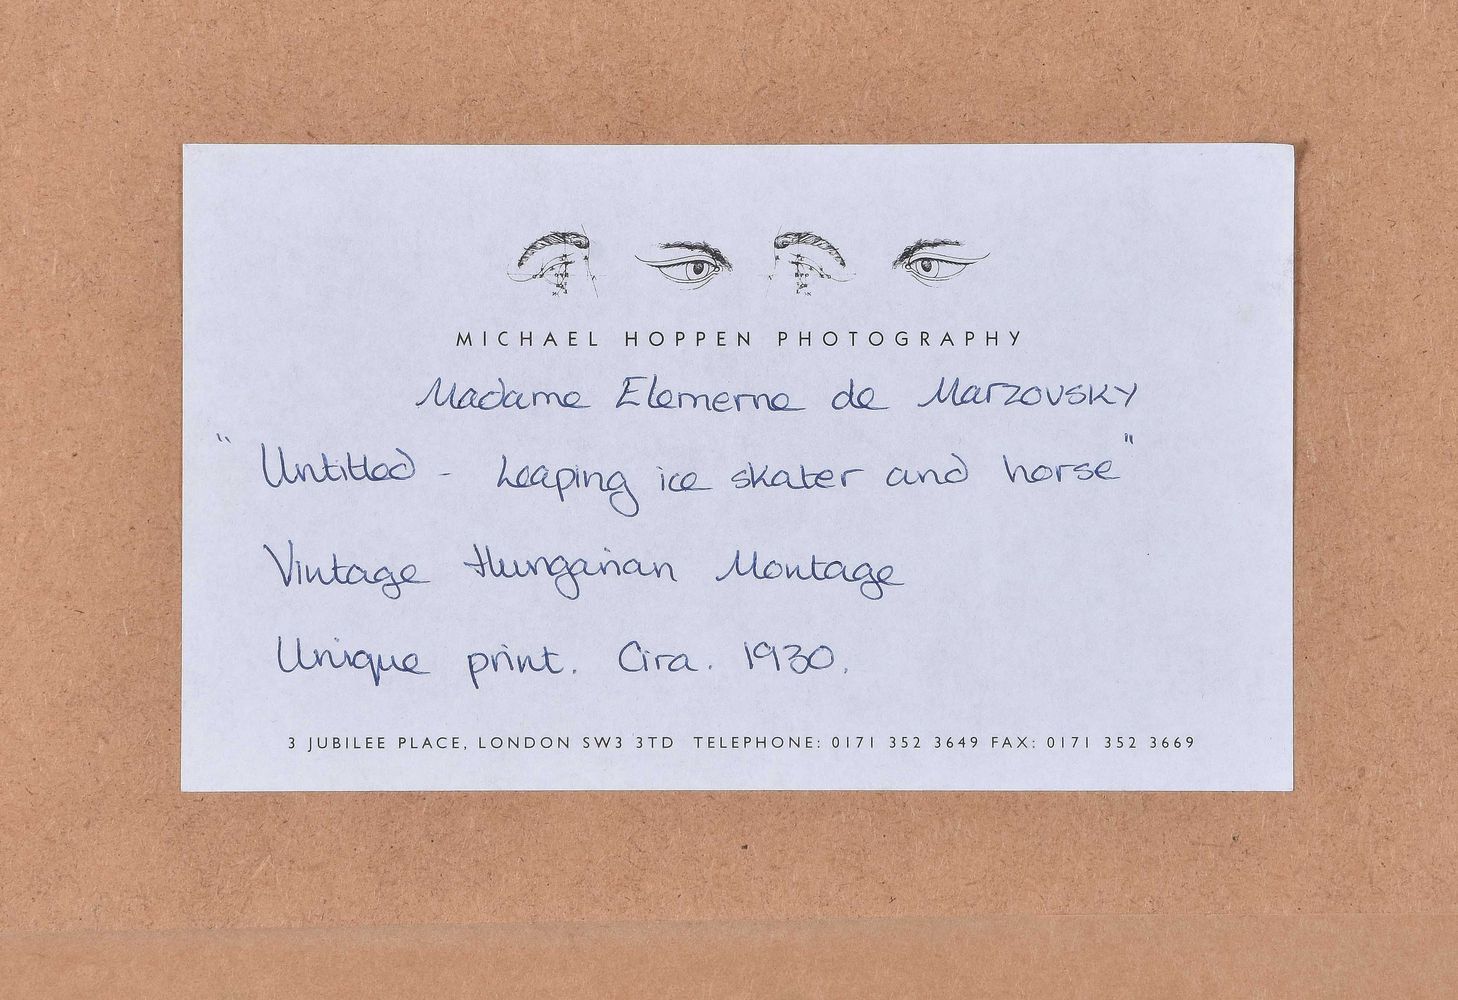 MICHAEL HOPPEN PHOTOGRAPHY
Madame Elemerne de Marzovsky
"Untitled - Leaping ice skater and horse"
Vintage Hungarian Montage
Unique print. Cira. 1930.
3 JUBILEE PLACE, LONDON SW3 3TD TELEPHONE: 0171 352 3649 FAX: 0171 352 3669